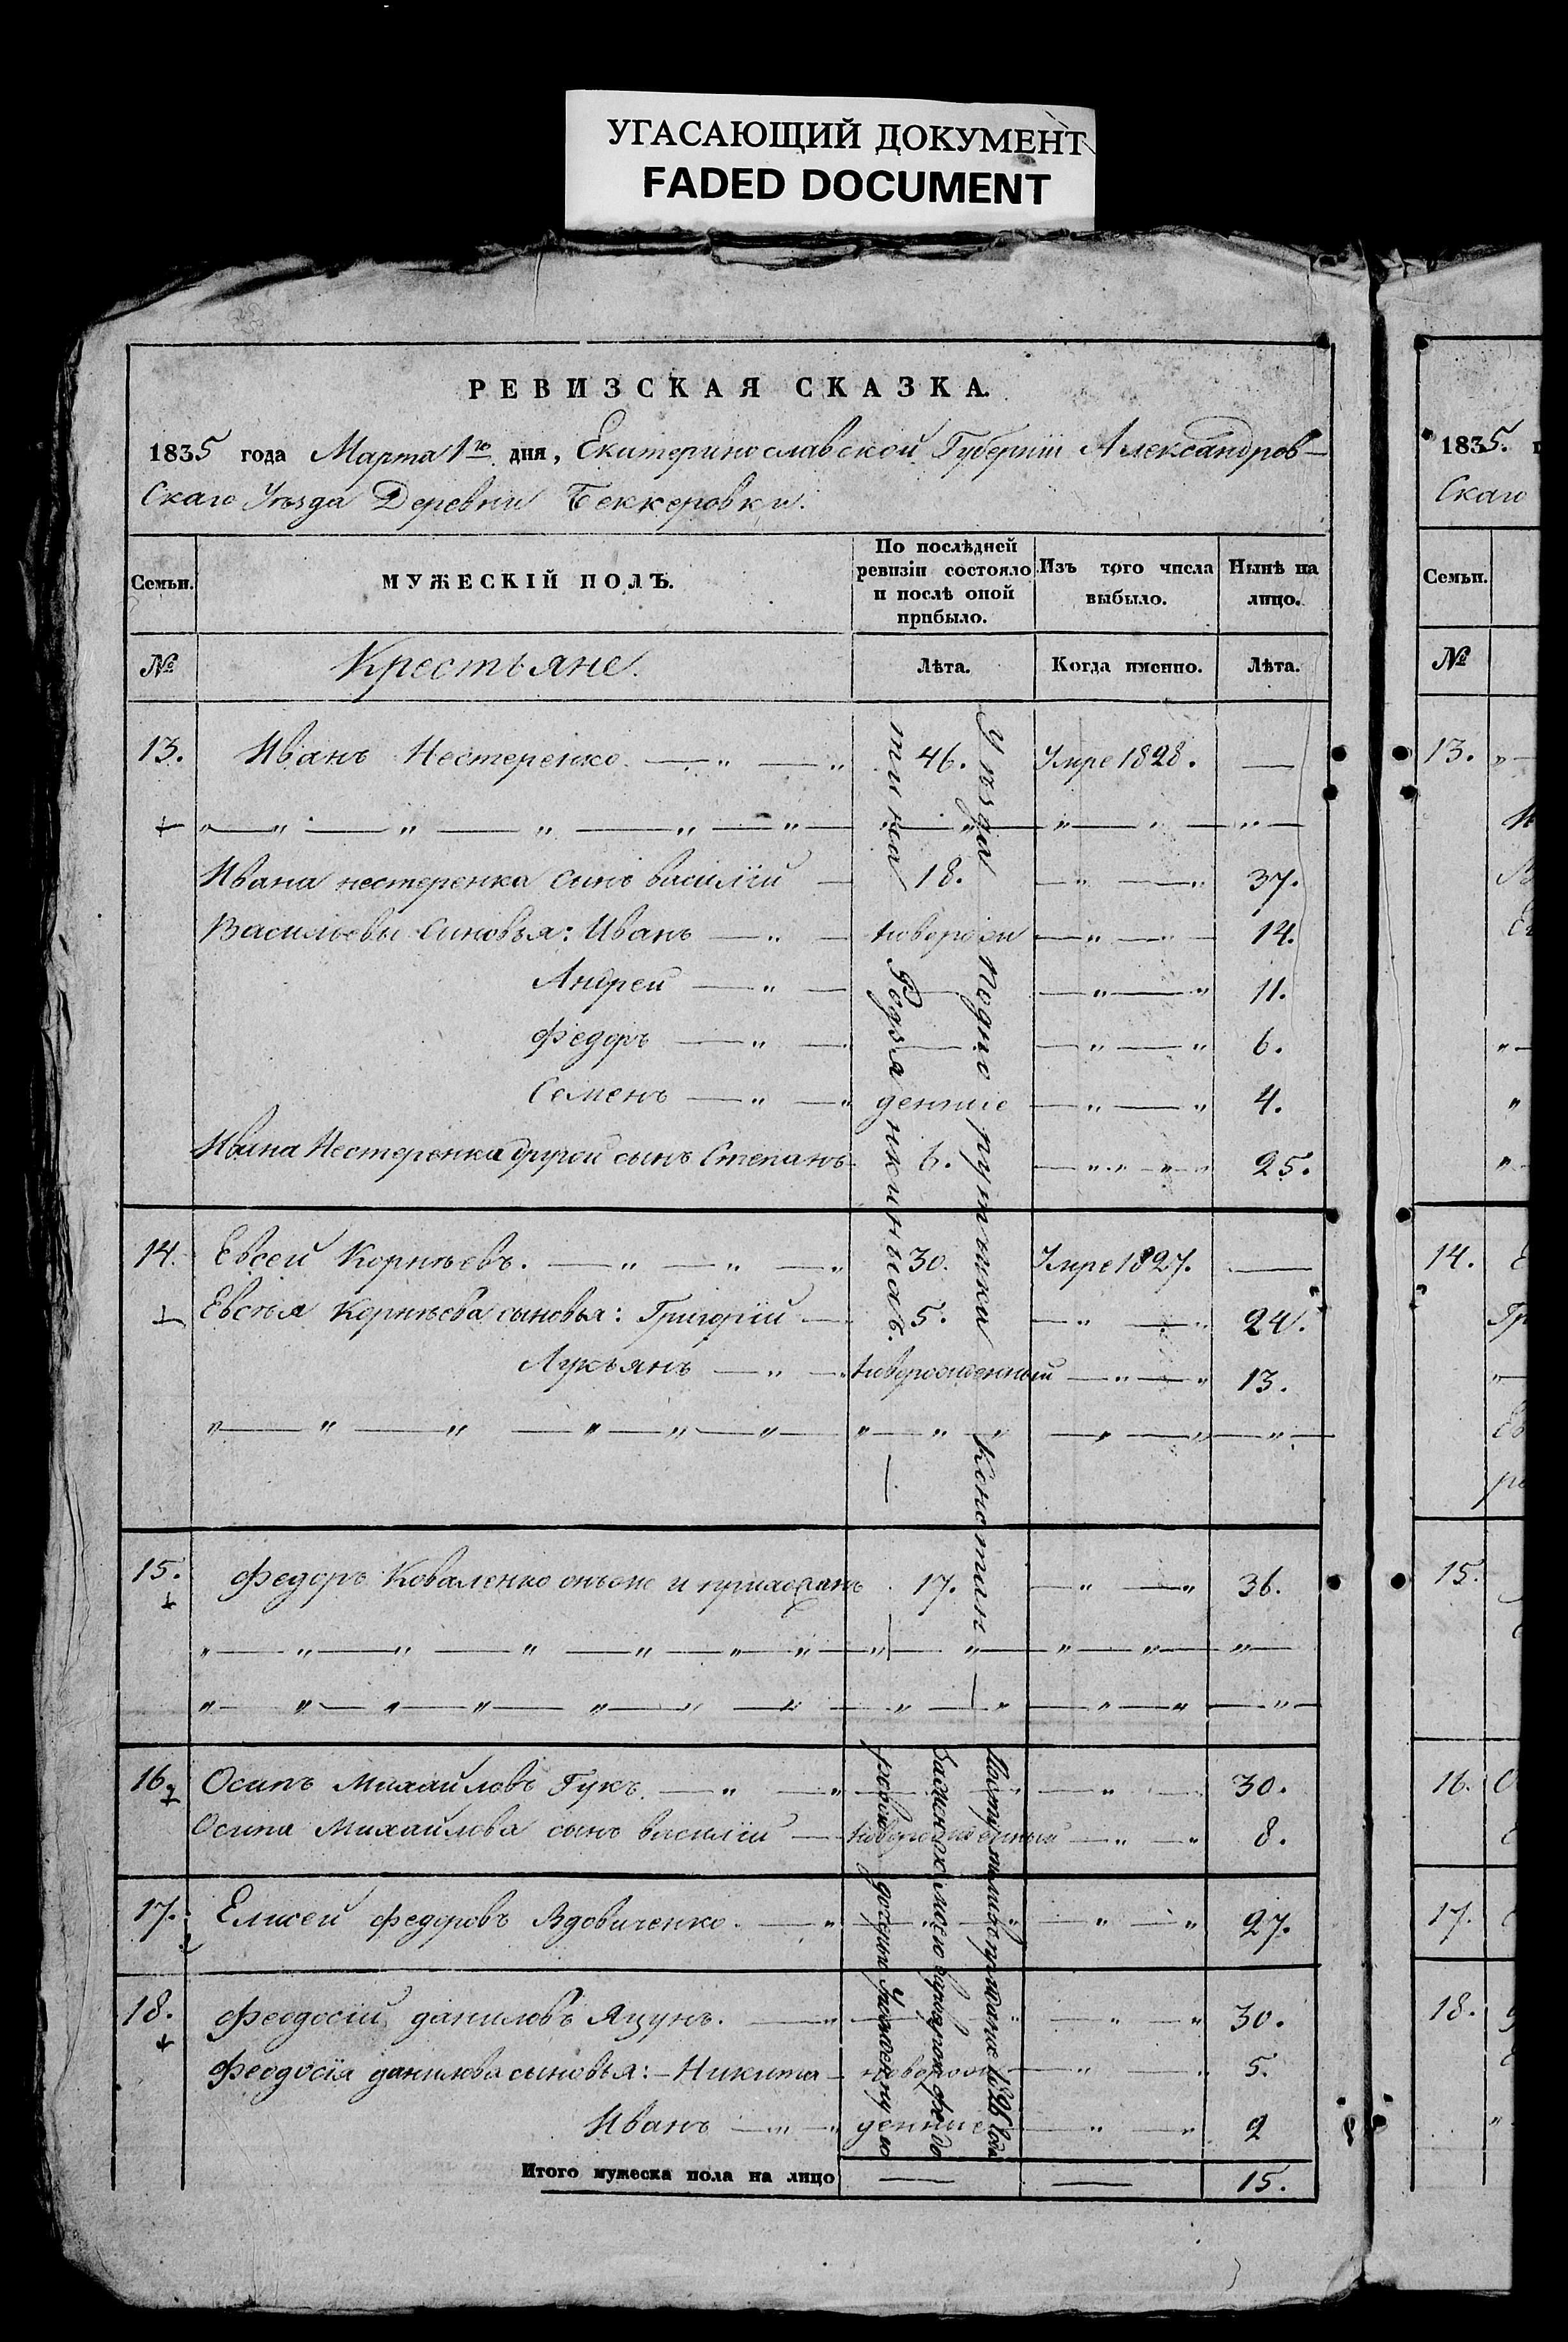 УГАСАЮЩИЙ ДОКУМЕНТ
FADED DOCUMENT
РЕВИЗСКАЯ СКАЗКА.
1835 года Марта 1го дня, Екатеринославской Губернiи Александров-
Скаго Уѣзда Деревни Беккеровки.
Семьи. МУЖЕСКIЙ ПОЛЪ. По послѣдней ревизiи состояло и послѣ оной прибыло. Изъ того числа выбыло. Нынѣ на лицо.
№ Крестьяне. Лѣта. Когда именно. Лѣта.
13. Иванъ Нестеренко — " — " 46. Умре 1828. —
Ивана нестеренка сынъ василiй — 18. — " — " 37.
Васильевы синовья: Иванъ — " — новорож — " — " 14.
Андрей — " — — — " — " 11.
Федоръ — " — — — " — " 6.
Семенъ — " — " денные — " — " 4.
Ивана Нестеренка другой сынъ Степанъ 6. — " " " — " 25.
14. Евсей Корнѣевъ. — " — " — " 30. Умре 1827. —
Евсѣя Корнѣева сыновья: Григорiй — 5. — " — " 24.
Лукьянъ — " — " новорожденный — " — " 13.
15. Федоръ Коваленко онъже и 17. — " — " 36.
16. Осипъ Михайловъ Гукъ. — " — " — " — 30.
Осипа Михайлова сынъ василiй — новорожденный — " — " 8.
17. Елисей федоровъ Вдовиченко. — " — " — " 27.
18. Феодосiй даниловъ Яцунъ. — " — " — " 30.
Феодосiя данилова сыновья: - Никита - новорож — " — " 5.
Иванъ — " — " денные — " — " 2
Итого мужеска пола на лицо — — 15.
Уѣзда Подпоручика Констан —
тина Родзянкиныхъ. —
1835.
Скаго
Семьи.
№
13.
14.
15.
16.
17.
18.